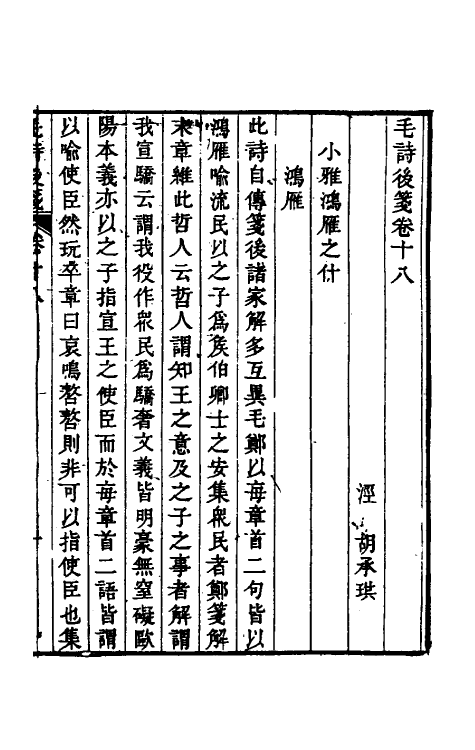 毛詩後箋卷十八
涇 胡承珙
小雅鴻雁之什
鴻雁
此詩自傳箋後諸家解多互異毛鄭以每章首二句皆以
鴻雁喻流民以之子為侯伯卿士之安集衆民者鄭箋解
末章維此哲人云哲人謂知王之意及之子之事者解謂
我宣驕云謂我役作衆民為驕奢文義皆明豪無窒礙歐
陽本義亦以之子指宣王之使臣而於每章首二語皆謂
以喻使臣然玩卒章曰哀鳴嗸嗸則非可以指使臣也集
毛詩後箋 卷十八